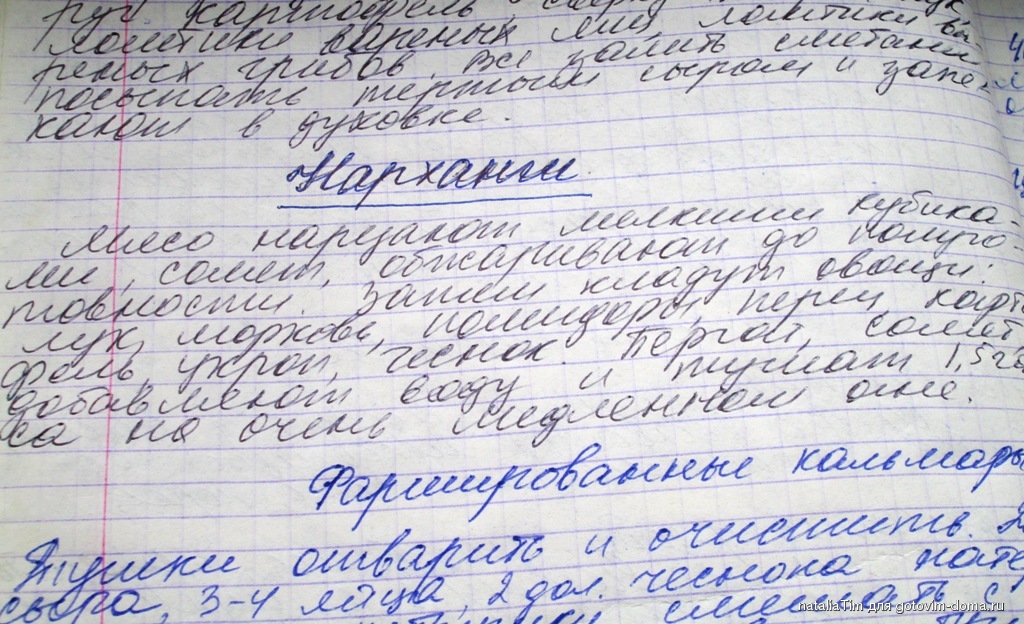 руг картофель
ломтики вареных яиц, ломтики ва-
реных грибов. Все залить сметаной
посыпать тертым сыром и запе-
кают в духовке.
Нарханги
Мясо нарезают мелкими кубика-
ми, солят, обжаривают до полуго-
товности. Затем кладут овощи:
лук, морковь, помидоры, перец карто
фель, укроп, чеснок. Перчат, солят
добавляют воду и тушат 1,5 ча
са на очень медленном огне.
Фаршированные кальмары
Тушки отварить и очистить. 2
сыра, 3-4 яйца, 2 дол. чеснока нате
смешать с
nataliaTIm для gotovim-doma.ru